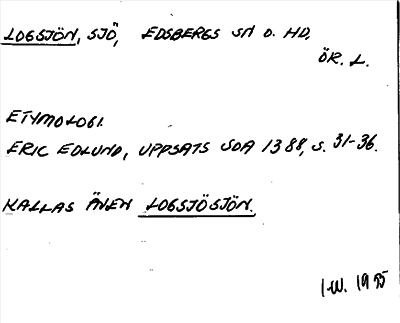 LOGSJÖN, SJÖ, EDSBERGS SN O. HD.
ÖR. L.
ETYMOLOGI.
ERIC EDLUND, UPPSATS SOA 1388, S. 31-36.
KALLAS ÄVEN LOGSJÖSJÖN.
I.W. 1955